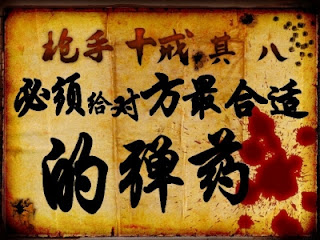 枪手十戒其八
必须给对方最合适
的弹药